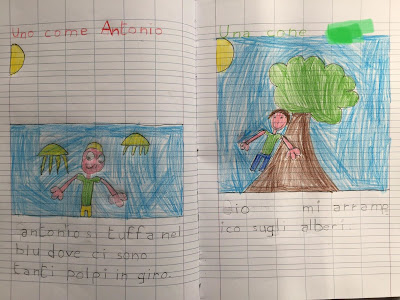 Uno come Antonio
antonio si tuffa nel
blu dove ci sono
tanti polpi in giro.
Una come
eio mi arramp
ico sugli alberi.